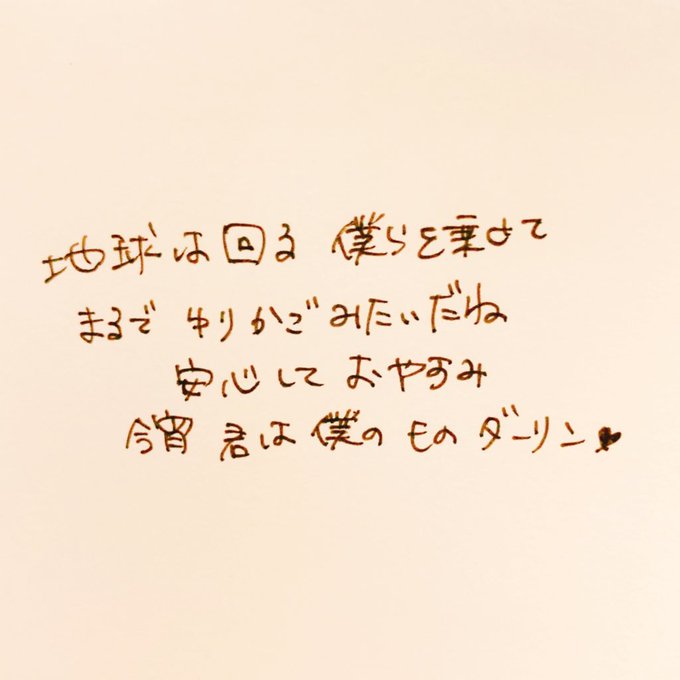 地球は回る 僕らを乗せて
まるで ゆりかごみたいだね
安心して おやすみ
今宵 君は僕のもの ダーリン♥